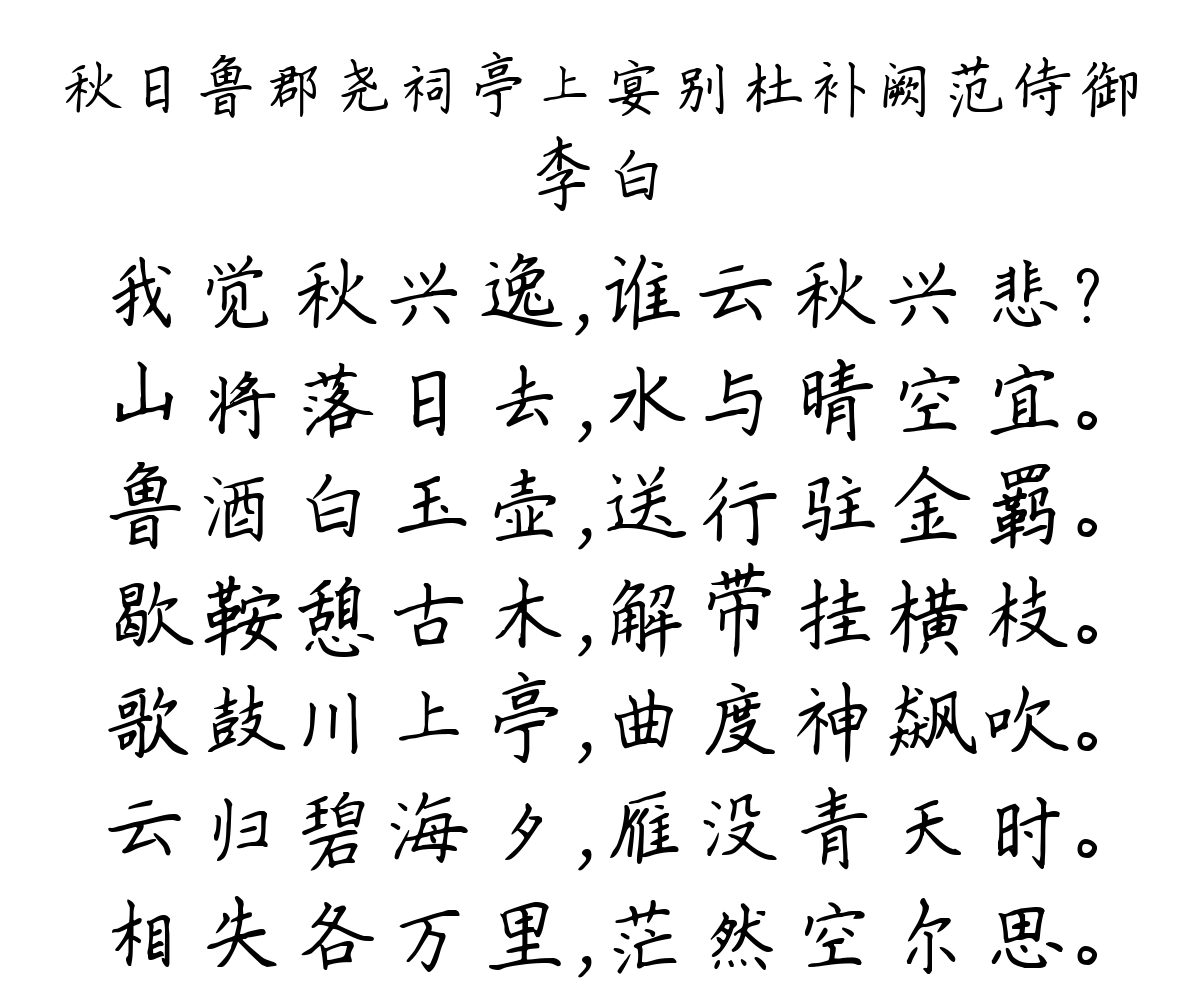 秋日鲁郡尧祠亭上宴别杜补阙范侍御
李白
我觉秋兴逸,谁云秋兴悲?
山将落日去,水与晴空宜。
鲁酒白玉壶,送行驻金羁。
歇鞍憩古木,解带挂横枝。
歌鼓川上亭,曲度神飙吹。
云归碧海夕,雁没青天时。
相失各万里,茫然空尔思。